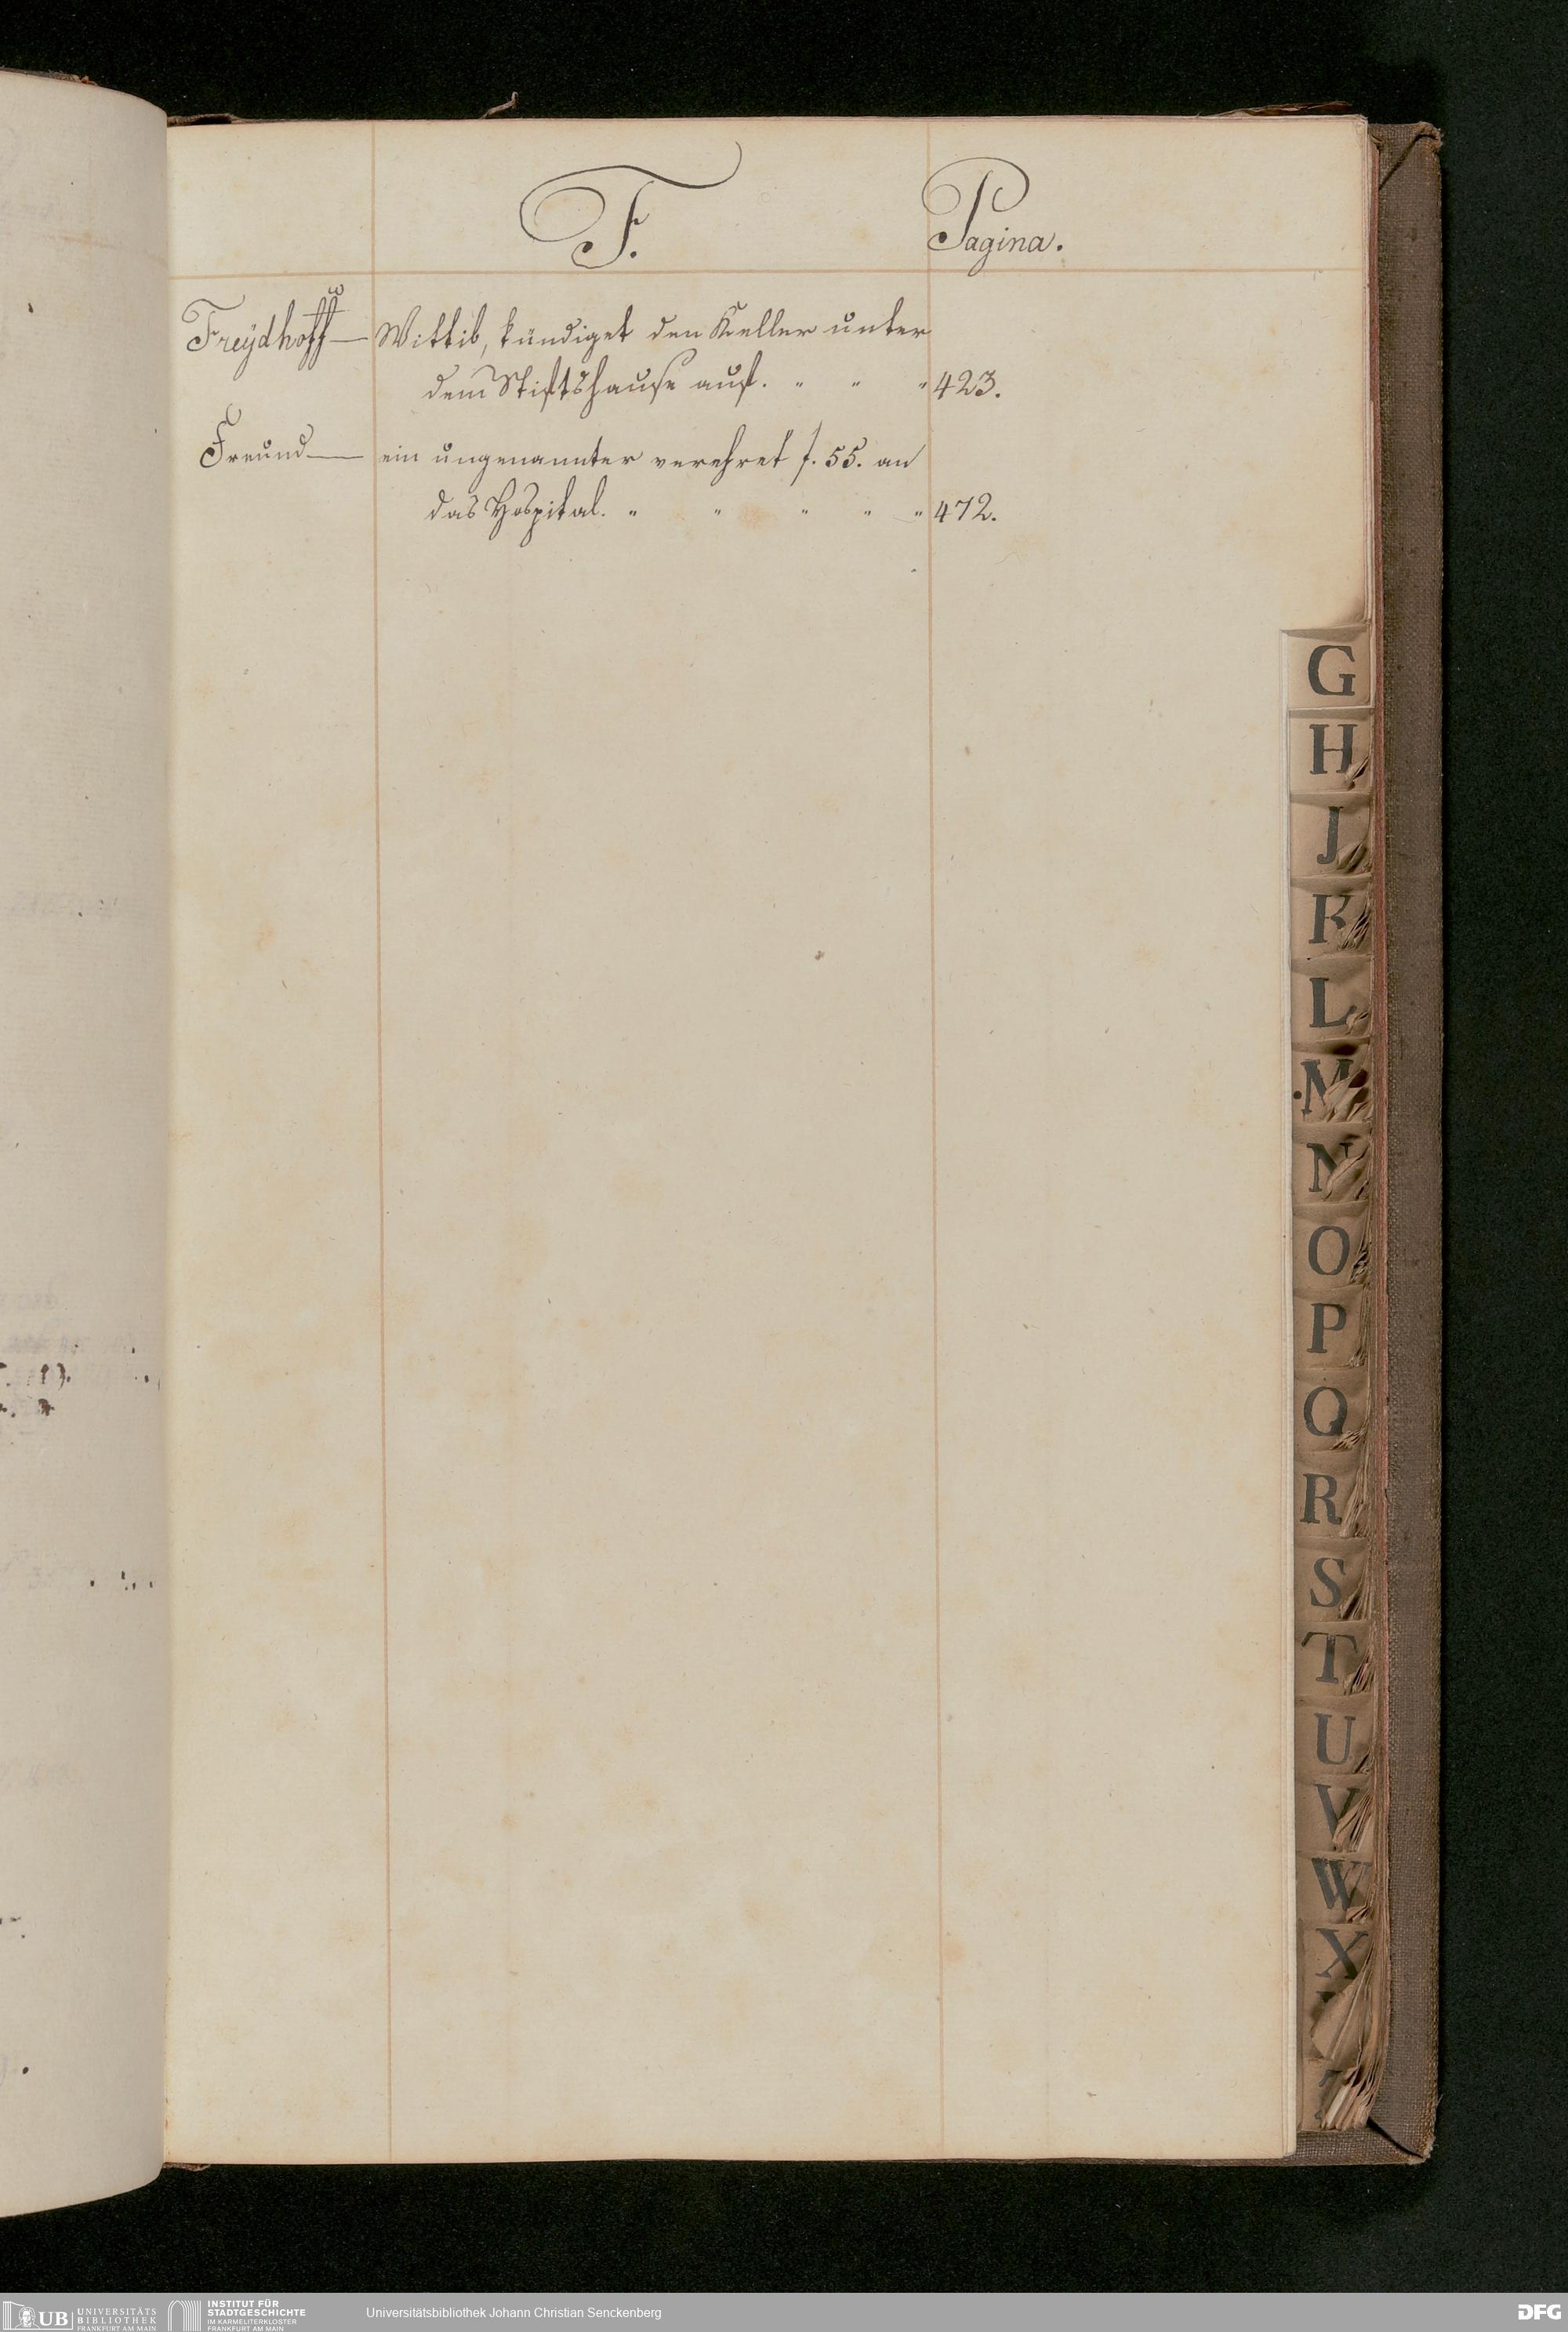 F. Pagina.
Freÿdhoff — Wittib, kündiget den Keller unter
dem Stiftshause auf. " " " 423.
Freund — ein ungenannter verehret f. 55. an
das Hospital. " " " " " 472.
G
H
J
K
L
M
N
O
P
Q
R
S
T
U
V
W
X
UB UNIVERSITÄTS
BIBLIOTHEK
FRANKFURT AM MAIN
INSTITUT FÜR
STADTGESCHICHTE
IM KARMELITERKLOSTER
FRANKFURT AM MAIN
Universitätsbibliothek Johann Christian Senckenberg
DFG